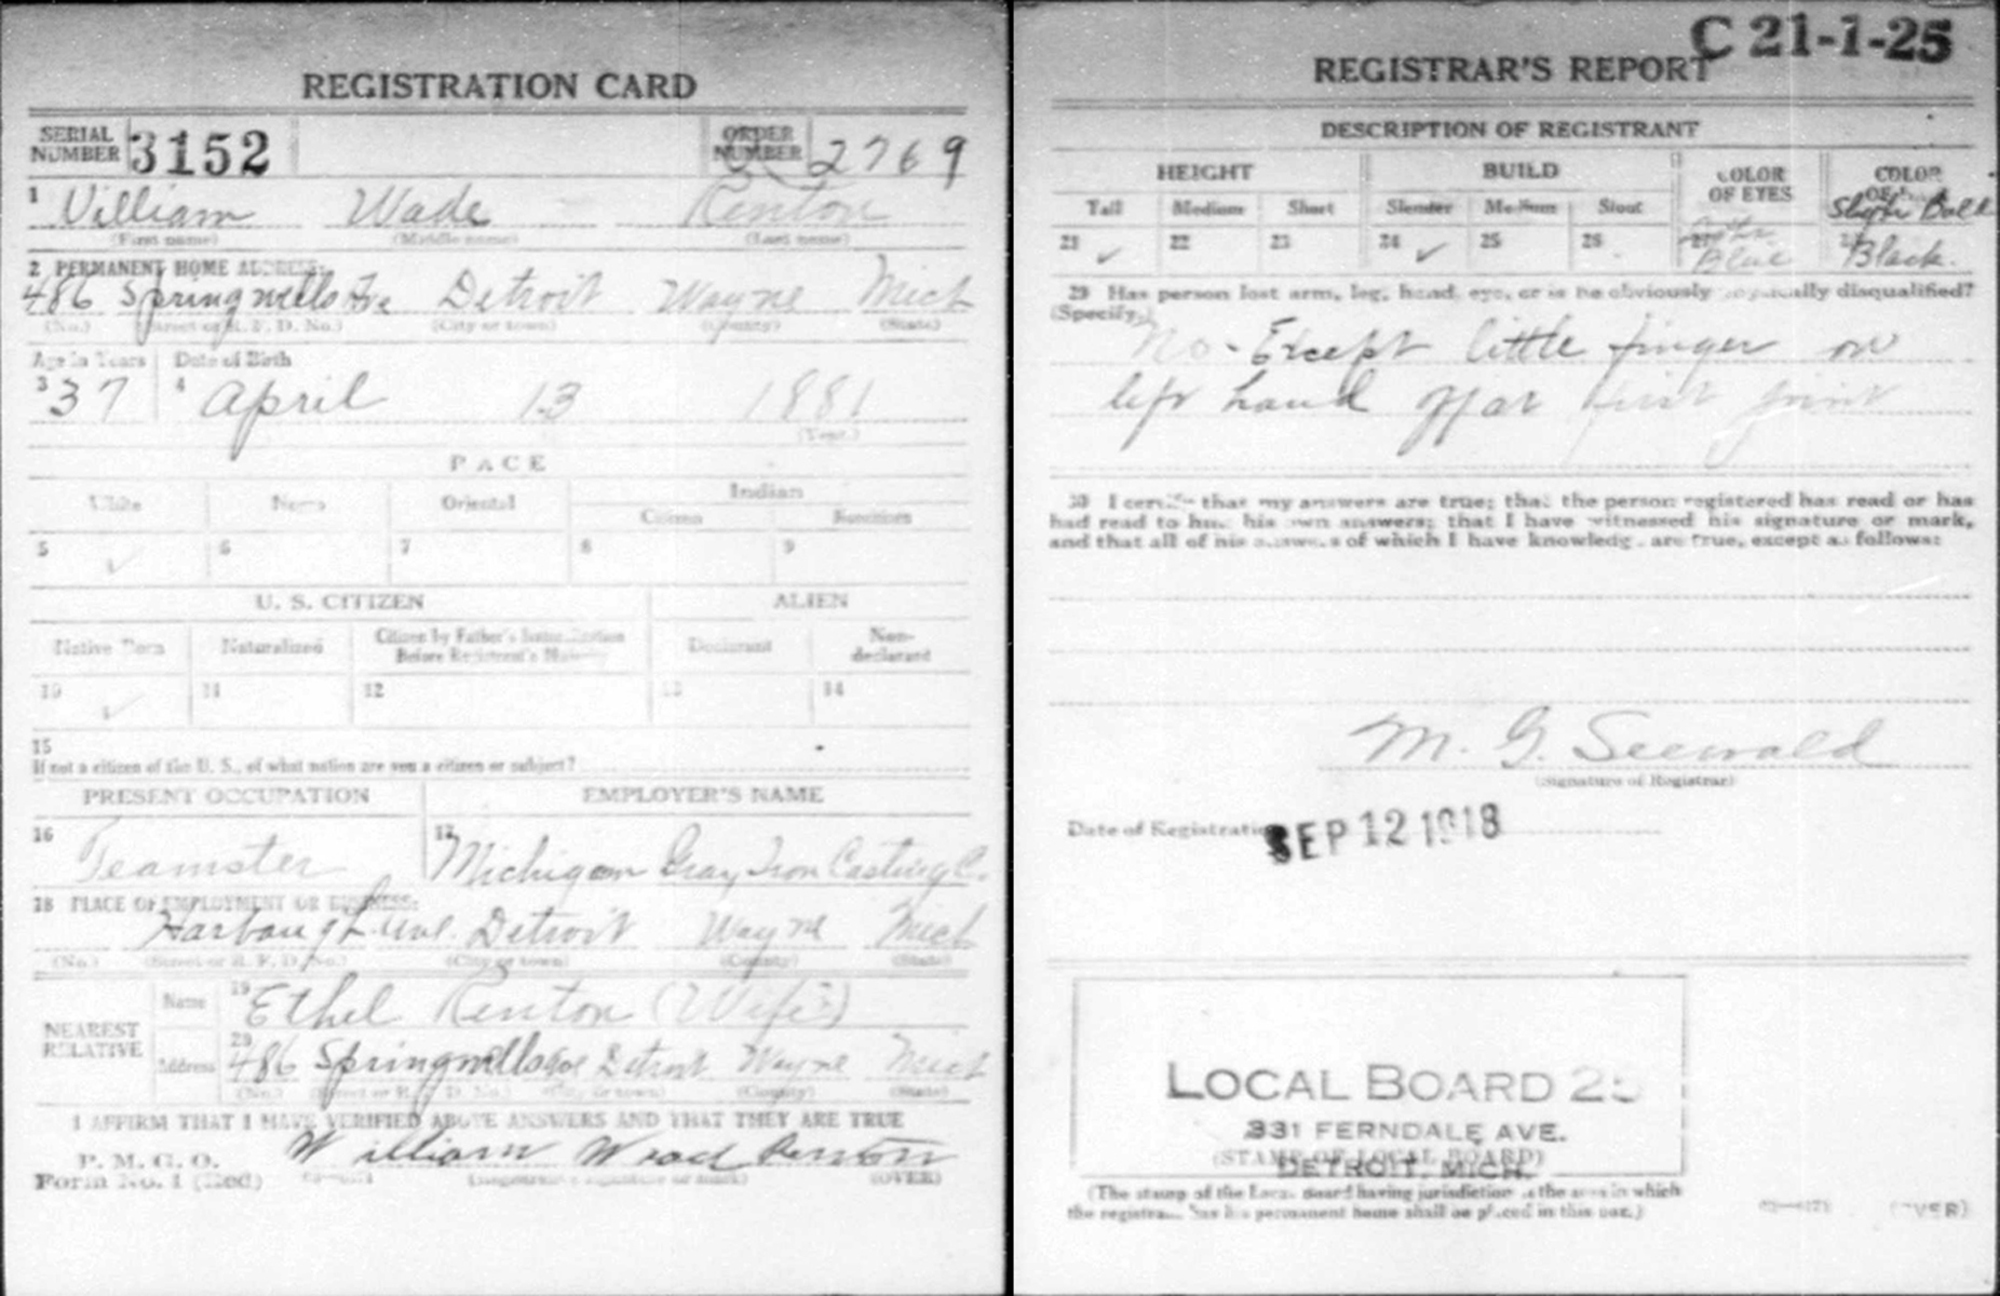 REGISTRATION CARD
SERIAL NUMBER 3152 ORDER NUMBER 2769
1 William Wade Renton
(First name) (Middle name) (Last name)
2 PERMANENT HOME ADDRESS:
486 Springwells Ave Detroit Wayne Mich
(No.) (Street or R. F. D. No.) (City or town) (County) (State)
Age in Years Date of Birth
3 37 4 April 13 1881
(Year.)
RACE
White Negro Oriental Indian
Citizen Noncitizen
5 ✓ 6 7 8 9
U. S. CITIZEN ALIEN
Native Born Naturalized Citizen by Father's Naturalization Before Registrant's Majority Declarant Non-declarant
10 ✓ 11 12 13 14
15
If not a citizen of the U. S., of what nation are you a citizen or subject?
PRESENT OCCUPATION EMPLOYER'S NAME
16 Teamster 17 Michigan Gray Iron Casting C.
18 PLACE OF EMPLOYMENT OR BUSINESS:
Harbaugh Ave. Detroit Wayne Mich
(No.) (Street or R. F. D. No.) (City or town) (County) (State)
NEAREST RELATIVE
Name 19 Ethel Renton (Wife)
Address 20 486 Springwells Ave Detroit Wayne Mich
(No.) (Street or R. F. D. No.) (City or town) (County) (State)
I AFFIRM THAT I HAVE VERIFIED ABOVE ANSWERS AND THAT THEY ARE TRUE
P. M. G. O.
Form No. 1 (Red) William Wead Renton
(Registrant's signature or mark) (OVER)
C 21-1-25
REGISTRAR'S REPORT
DESCRIPTION OF REGISTRANT
HEIGHT BUILD COLOR OF EYES COLOR OF
Tall Medium Short Slender Medium Stout
21 ✓ 22 23 24 ✓ 25 26 27 Blue Black.
29 Has person lost arm, leg, hand, eye, or is he obviously physically disqualified?
(Specify.)
No - Except little finger on
left hand off at first joint
30 I certify that my answers are true; that the person registered has read or has
had read to him his own answers; that I have witnessed his signature or mark,
and that all of his answers of which I have knowledge are true, except as follows:
M. G. Seewald
(Signature of Registrar)
Date of Registration SEP 12 1918
LOCAL BOARD 25
331 FERNDALE AVE.
(STAMP OF LOCAL BOARD)
DETROIT, MICH.
(The stamp of the Local Board having jurisdiction of the area in which
the registrant has his permanent home shall be placed in this box.)
(OVER)